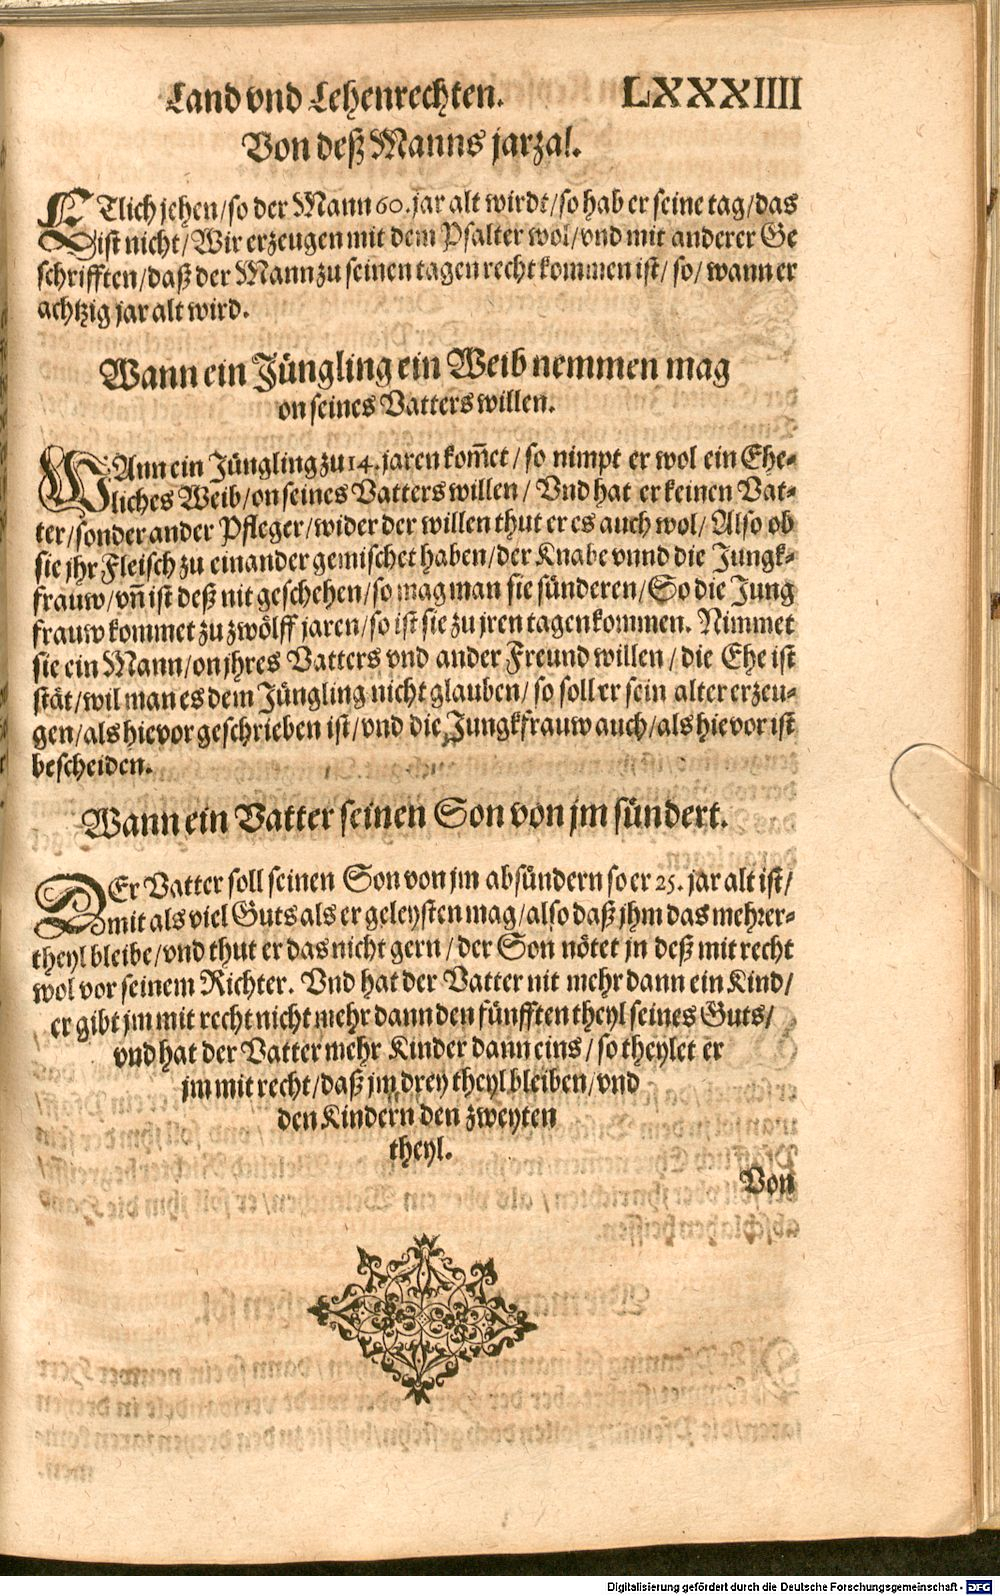 Land vnd Lehenrechten. LXXXIIII
Von deß Manns jarzal.
ETlich jehen/so der Mann 60. jar alt wirdt/so hab er seine tag/das
ist nicht/Wir erzeugen mit dem Psalter wol/vnd mit anderer Ge
schrifften/daß der Mann zu seinen tagen recht kommen ist/ so/ wann er
achtzig jar alt wird.
Wann ein Jüngling ein Weib nemmen mag
on seines Vatters willen.
WAnn ein Jüngling zu 14. jaren kom̄et/ so nimpt er wol ein Ehe-
liches Weib/on seines Vatters willen/ Vnd hat er keinen Vat-
ter/sonder ander Pfleger/wider der willen thut er es auch wol/ Also ob
sie jhr Fleisch zu einander gemischet haben/der Knabe vnnd die Jungk-
frauw/vn̄ ist deß nit geschehen/so mag man sie sünderen/So die Jung
frauw kommet zu zwölff jaren/so ist sie zu jren tagen kommen. Nimmet
sie ein Mann/on jhres Vatters vnd ander Freund willen/ die Ehe ist
stät/wil man es dem Jüngling nicht glauben/ so soll er sein alter erzeu-
gen/als hievor geschrieben ist/vnd die Jungkfrauw auch/als hievor ist
bescheiden.
Wann ein Vatter seinen Son von jm sündert.
DEr Vatter soll seinen Son von jm absündern so er 25. jar alt ist/
mit als viel Guts als er geleysten mag/also daß jhm das mehrer-
theyl bleibe/vnd thut er das nicht gern/der Son nötet jn deß mit recht
wol vor seinem Richter. Vnd hat der Vatter nit mehr dann ein Kind/
er gibt jm mit recht nicht mehr dann den fünfften theyl seines Guts/
vnd hat der Vatter mehr Kinder dann eins/ so theylet er
jm mit recht/daß jm drey theyl bleiben/vnd
den Kindern den zweyten
theyl.
Von
Digitalisierung gefördert durch die Deutsche Forschungsgemeinschaft - DFG